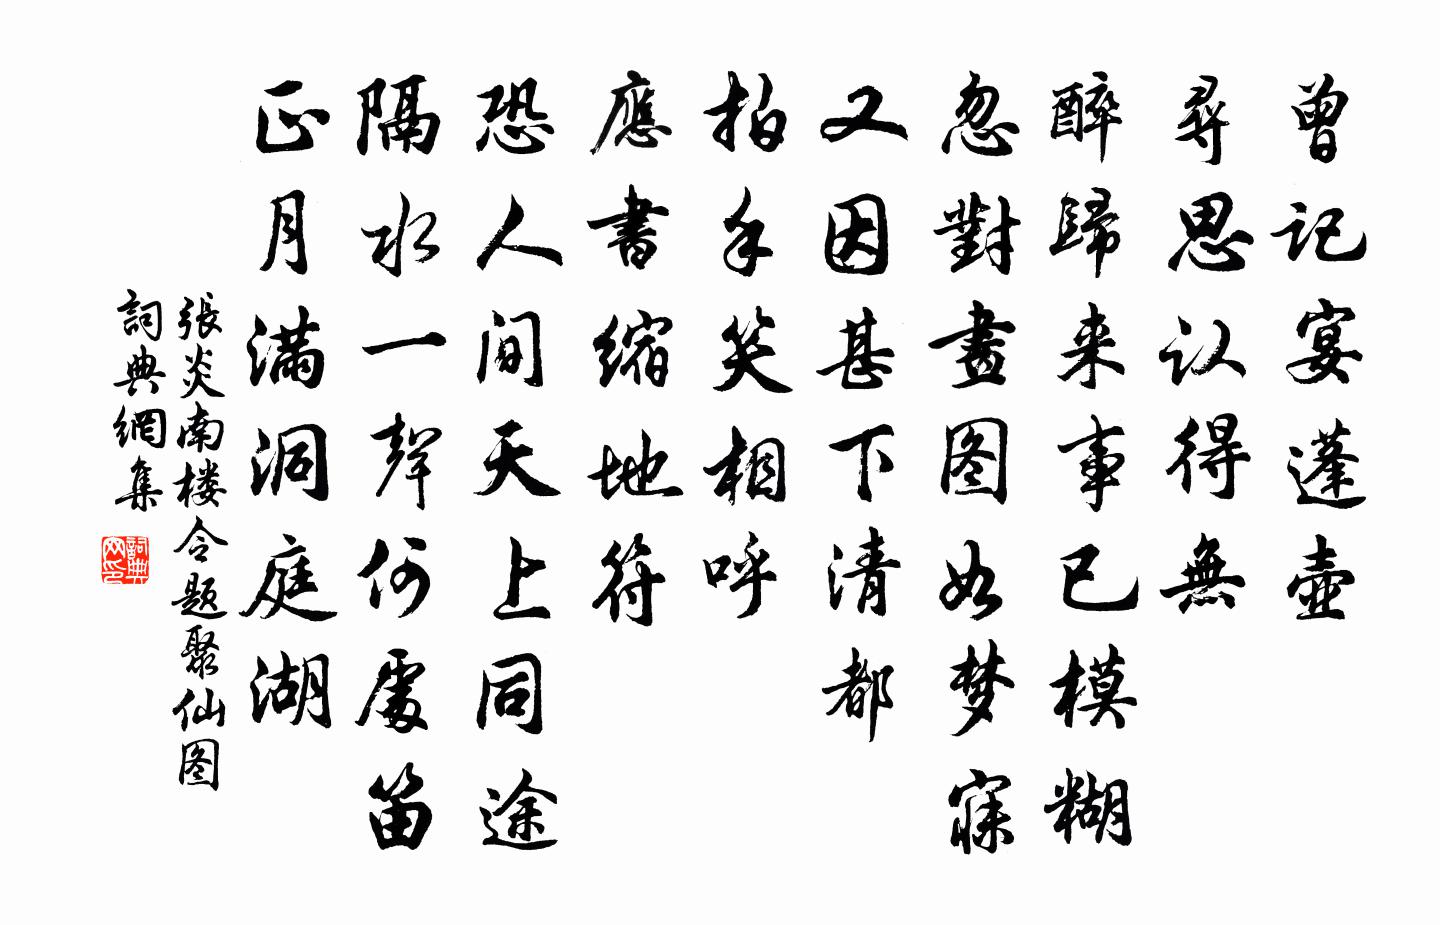 曾记宴蓬壺
尋思认得無
醉歸来事已模糊
忽對畫图如梦寐
又因甚下清都
拍手笑相呼
應書缩地符
恐人间天上同途
隔水一聲何處笛
正月满洞庭湖
張炎南楼令题聚仙图
詞典網集
詞典网印